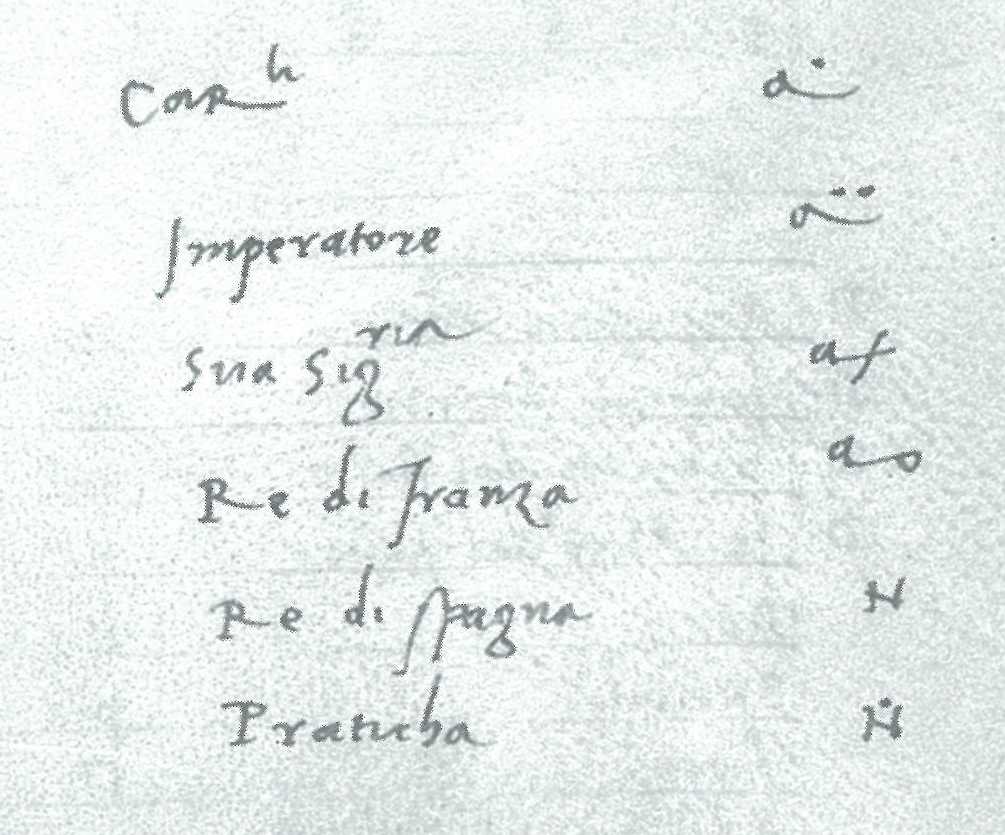 Car^li a
Imperatore a
Sua Sig^ria af
Re di franza ao
Re di spagna N
Praticha N